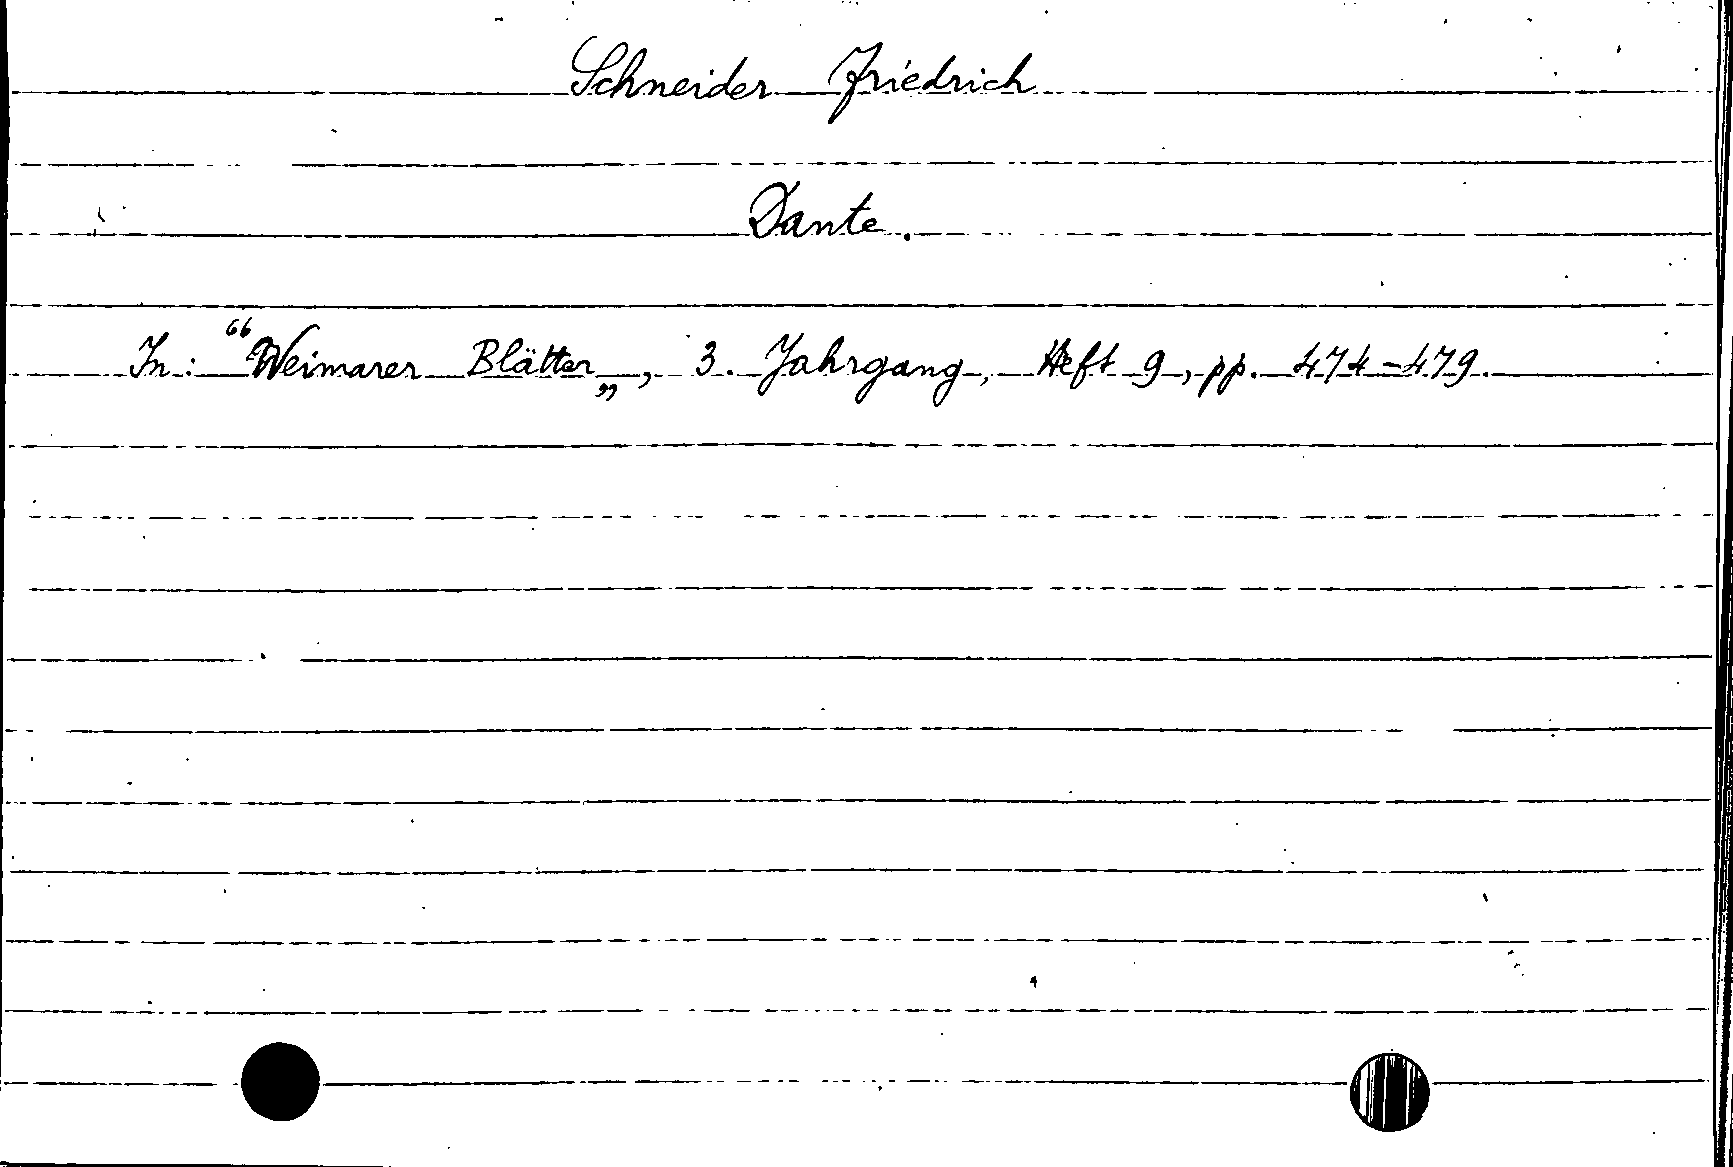 Schneider Friedrich
Dante.
In: “Weimarer Blätter„, 3. Jahrgang, Heft 9, pp. 474-479.